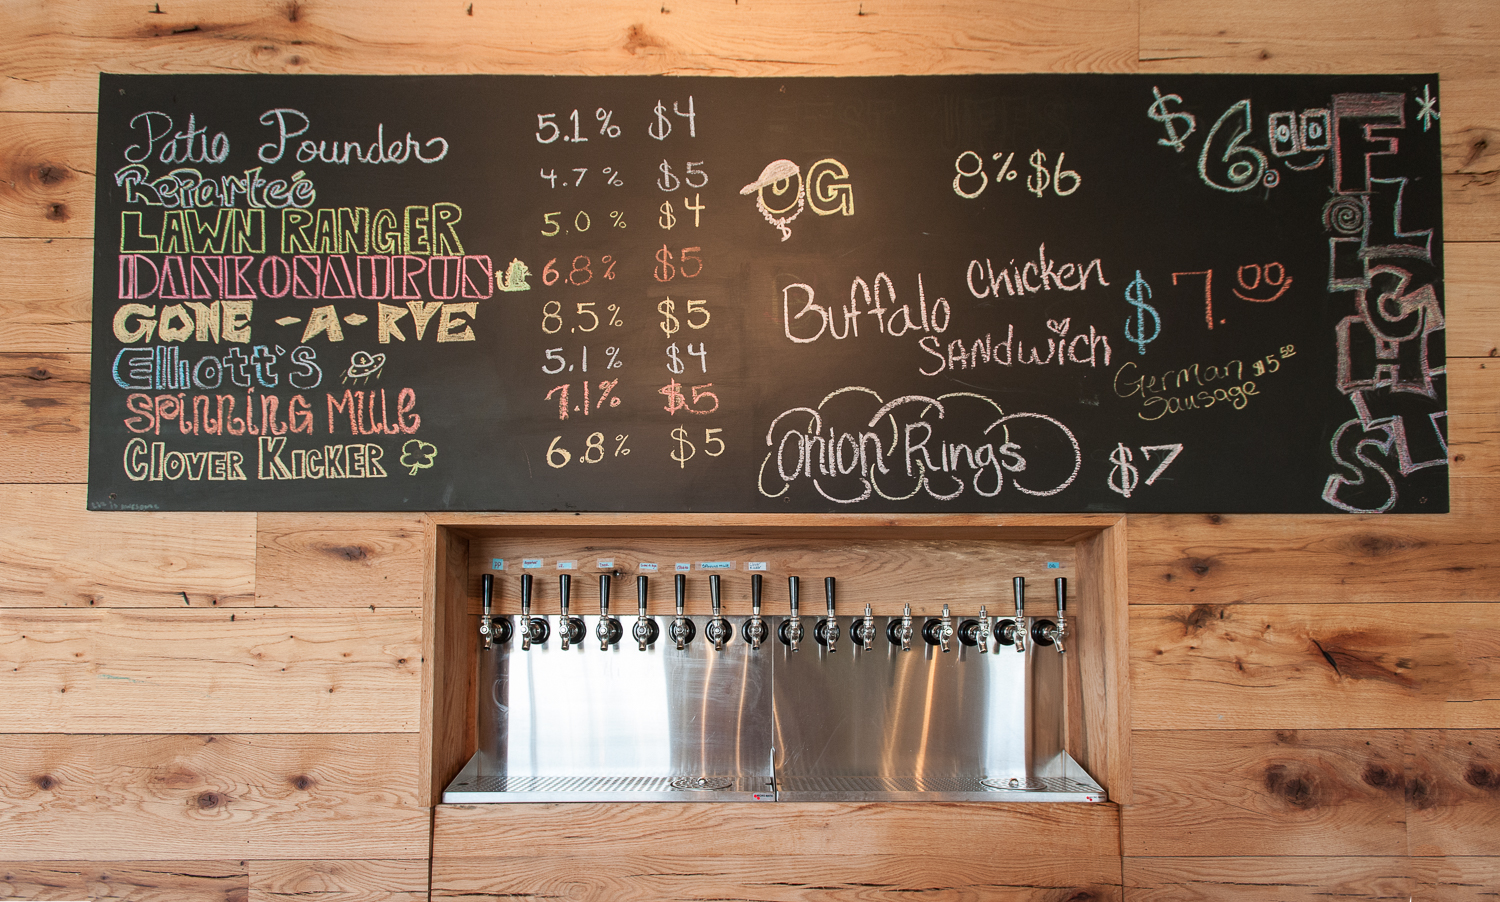 Patio Pounder 5.1% $4
Reparteé 4.7% $5
LAWN RANGER 5.0% $4
DANKOSAURUS 6.8% $5
GONE-A-RYE 8.5% $5
Elliott's 5.1% $4
SPINNING MULE 7.1% $5
CLOVER KICKER 6.8% $5
OG 8% $6
Buffalo Chicken
SANDwich $7.00
German $5.50
Sausage
Onion Rings $7
$6.00 *
FLIGHTS